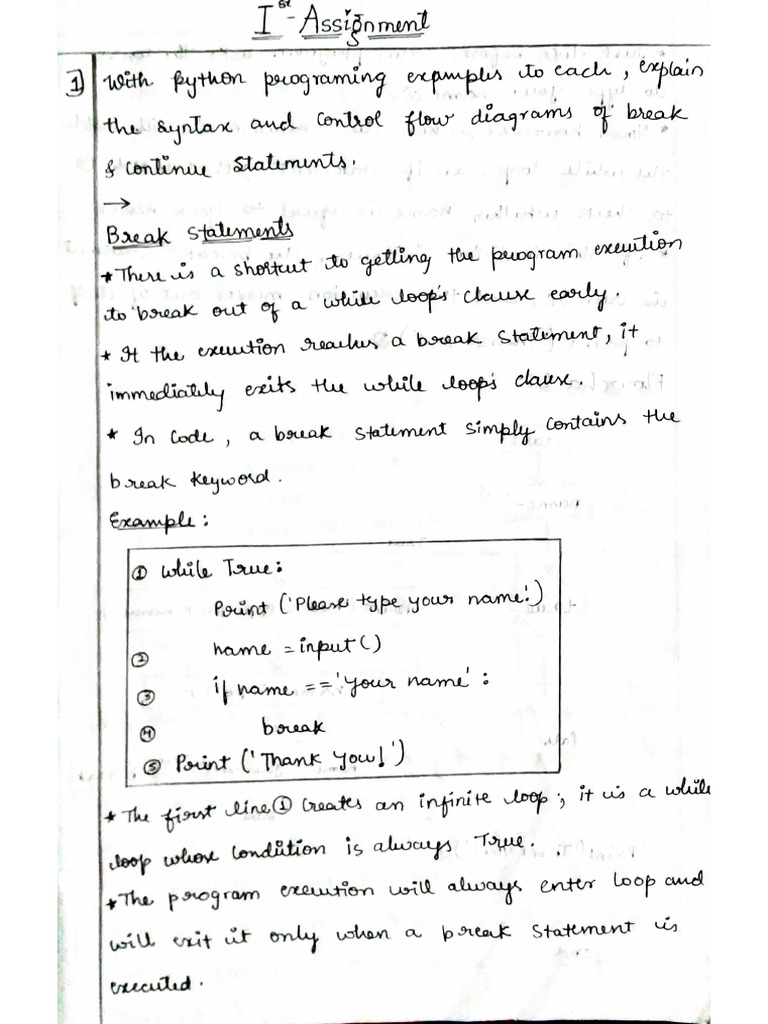 Ist - Assignment
1] With Python programing examples to each, explain
the syntax and control flow diagrams of break
& continue statements.
→
Break statements
* There is a shortcut to getting the program execution
to break out of a while loop's clause early.
* It the execution reaches a break statement, it
immediately exits the while loop's clause.
* In code, a break statement simply contains the
break keyword.
Example:
① while True:
Print ('Please type your name.')
② name = input()
③ if name == 'your name' :
④ break
⑤ Print ('Thank you!')
* The first line ① creates an infinite loop; it is a while
loop whose condition is always True.
* The program execution will always enter loop and
will exit it only when a break statement is
executed.